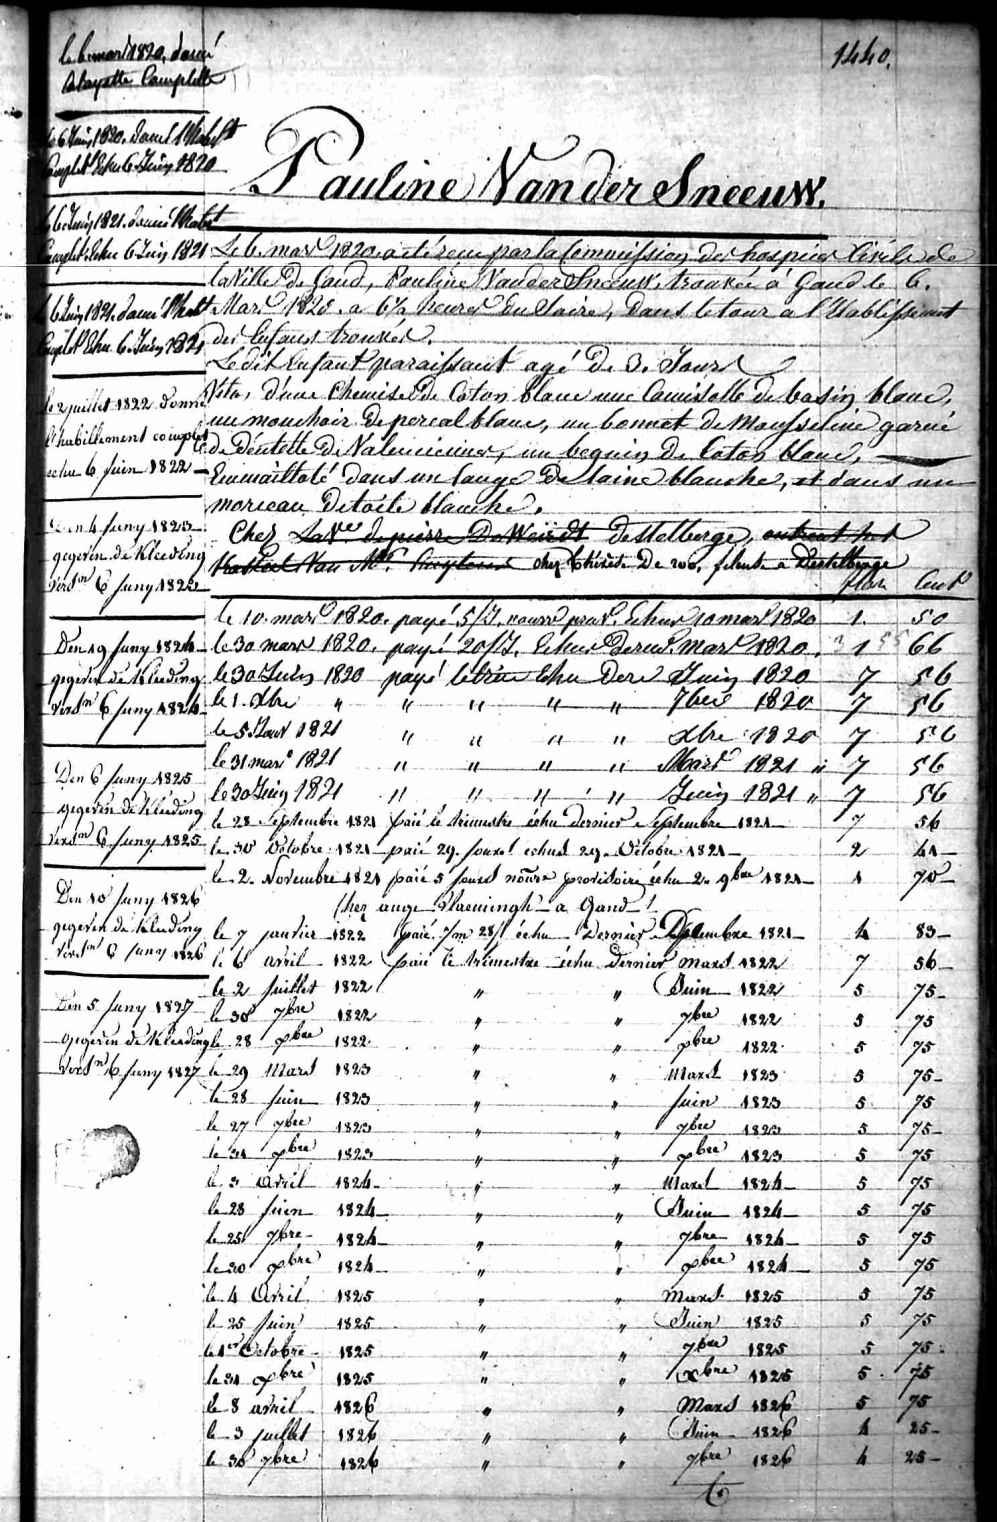 1440.
le 6 mars 1820. donné
la layette Complette
le 6 Juin 1820. donné l'habt
Complet Echu 6 Juin 1820
le 6 Juin 1821. donné l'habt
Complet Echu 6 Juin 1821
le 6 Juin 1821. donné l'habt
Complet Echu 6 Juin 1821
le 2 juillet 1822 donné
l'habillement complet
echu 6 juin 1822
Den 4 Juny 1823
gegeven de Kleeding
versn 6 Juny 1823
Den 19 Juny 1824
gegeven de Kleeding
versn 6 Juny 1824
Den 6 Juny 1825
gegeven de Kleeding
versn 6 Juny 1825
Den 10 Juny 1826
gegeven de Kleeding
versn 6 Juny 1826
Den 5 Juny 1827
gegeven de Kleeding
versn 6 Juny 1827
Pauline Vander Sneeuw.
Le 6. mars 1820. a été reçu par la Commission des hospices Civils de
la Ville de Gand, Pauline Vander Sneeuw, trouvée à Gand le 6.
Mars 1820. a 6½ heures du Soire, Dans le tour a l'Etablissement
des Enfans trouvés.
Le dit Enfant paraissant agé de 3. Jours
Vetu, d'une Chemise de Coton blanc une Camisolle de basin blanc,
un mouchoir de percal blanc, un bonnet de Mousseline garni
de Dentelle de Valenciennes, un beguin de Coton blanc,
Emmailloté dans un lange de laine blanche, et dans un
morceau de toile blanche.
Chez La Ve de pierre De Weirdt Destelberge,
chez Thérèse De roo, filante a Destelberge
flor. Cents
le 10. mars 1820. payé 5/J. nourr. prov. Echus 10 mars 1820 1. 50
le 30 mars 1820. payé 20/J. Echus Dern. Mars 1820. 1 66
le 30 Juin 1820 payé le trim Echu Dern Juin 1820 7 56
le 1. Xbre " " " " " 7bre 1820 7 56
le 5 Janv 1821 " " " " Xbre 1820 7 56
le 31 mars 1821 " " " " Mars 1821 " 7 56
le 30 Juin 1821 " " " " Juin 1821 " 7 56
le 28 Septembre 1821 paié le trimestre echu dernier Septembre 1821 7 56
le 30 Octobre 1821 paié 29. jours echus 29. Octobre 1821 2 41
le 2. Novembre 1821 paié 5 jours nourre provisoire echu 2. 9bre 1821 1 70
Chez ange Vlaemingh a Gand
le 7 janvier 1822 paié 1/m 28/j échu Dernier Décembre 1821 4 83
le 6 avril 1822 paié le trimestre échu dernier mars 1822 7 56
le 2 Juillet 1822 " " Juin 1822 5 75
le 30 7bre 1822 " " 7bre 1822 5 75
le 28 xbre 1822 " " xbre 1822 5 75
le 29 Mars 1823 " " Mars 1823 5 75
le 28 juin 1823 " " juin 1823 5 75
le 27 7bre 1823 " " 7bre 1823 5 75
le 31 xbre 1823 " " xbre 1823 5 75
le 3 avril 1824 " " Mars 1824 5 75
le 28 juin 1824 " " Juin 1824 5 75
le 25 7bre 1824 " " 7bre 1824 5 75
le 30 xbre 1824 " " xbre 1824 5 75
le 4 Avril 1825 " " Mars 1825 5 75
le 25 juin 1825 " " Juin 1825 5 75
le 1er Octobre 1825 " " 7bre 1825 5 75
le 31 xbre 1825 " " xbre 1825 5 75
le 8 avril 1826 " " Mars 1826 5 75
le 3 juillet 1826 " " Juin 1826 4 25
le 30 7bre 1826 " " 7bre 1826 4 25